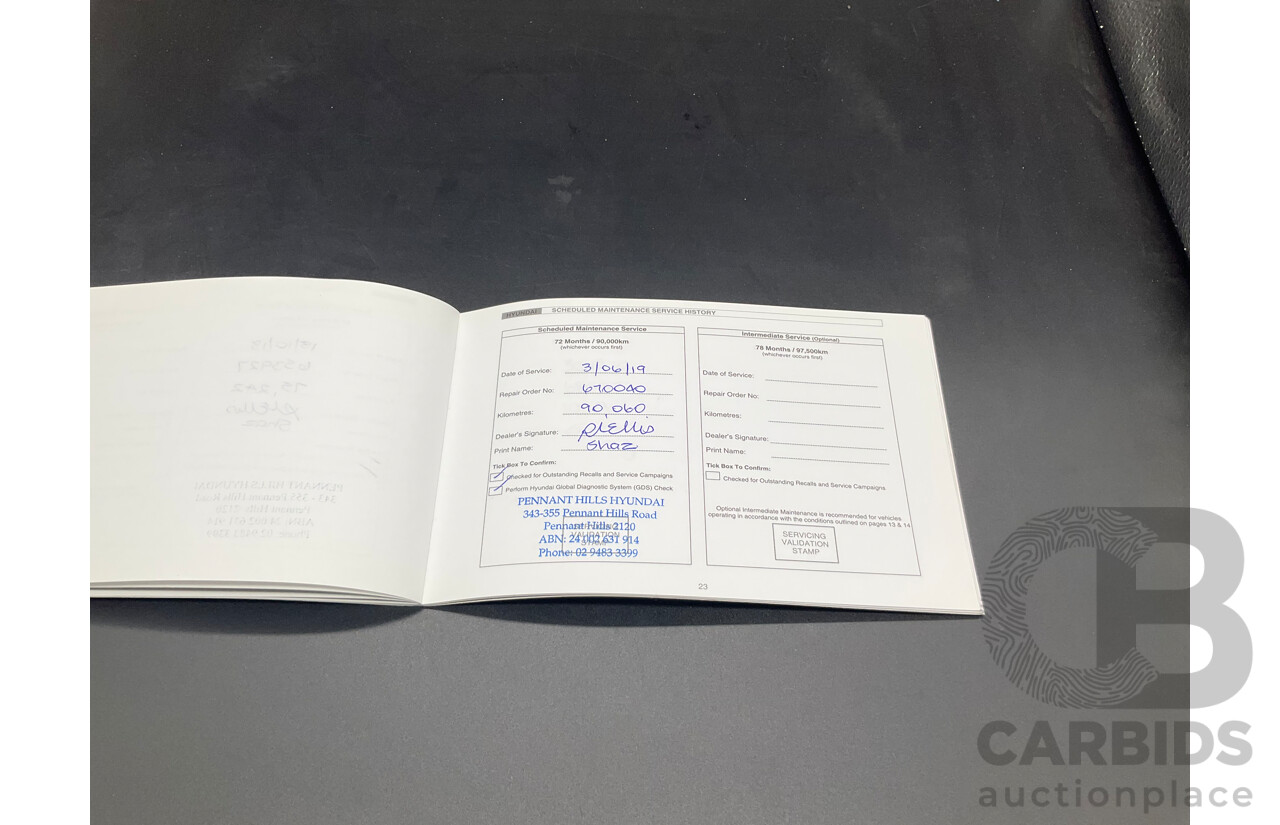 HYUNDAI SCHEDULED MAINTENANCE SERVICE HISTORY
Scheduled Maintenance Service
72 Months / 90,000km
(whichever occurs first)
Date of Service: 3/06/19
Repair Order No: 670040
Kilometres: 90,060
Dealer's Signature:
Print Name: Shaz
Tick Box To Confirm:
Checked for Outstanding Recalls and Service Campaigns
Perform Hyundai Global Diagnostic System (GDS) Check
PENNANT HILLS HYUNDAI
343-355 Pennant Hills Road
Pennant Hills 2120
ABN: 24 002 631 914
Phone: 02 9483 3399
VALIDATION
Intermediate Service (Optional)
78 Months / 97,500km
(whichever occurs first)
Date of Service:
Repair Order No:
Kilometres:
Dealer's Signature:
Print Name:
Tick Box To Confirm:
Checked for Outstanding Recalls and Service Campaigns
Optional Intermediate Maintenance is recommended for vehicles
operating in accordance with the conditions outlined on pages 13 & 14
SERVICING
VALIDATION
STAMP
23
CB
CARBIDS
auctionplace